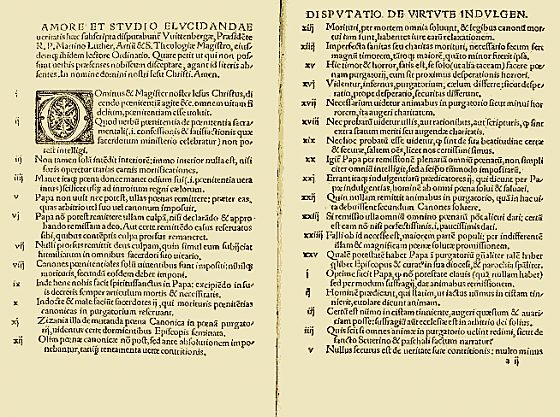 AMORE ET STVDIO ELVCIDANDAE
ueritatis hæc subscripta disputabunt̃ Vuittenbergæ, Præsidẽte
R. P. Martino Luther, Artiũ & S. Theologiæ Magistro, eius-
dem ibidem lectore Ordinario. Quare petit ut qui non pos-
sunt uerbis præsentes nobiscum disceptare, agant id literis ab-
sentes. In nomine domini nostri Iesu Christi. Amen.
i Ominus & Magister noster Iesus Christus, di-
cendo pœnitentiã agite &c. omnem uitam fi-
delium, pœnitentiam esse uoluit.
ij Quod uerbũ pœnitentia de pœnitentia sacra-
mentali (.i. confessionis & satisfactionis quæ
sacerdotum ministerio celebratur) non po-
test intelligi.
iij Non tamen solã intẽdit interiorẽ: immo interior nulla est, nisi
foris operetur uarias carnis mortificationes.
iiij Manet itaq; pœna donec manet odium sui (.i. pœnitentia uera
intus) scilicet usq; ad introitum regni cælorum.
v Papa non uult nec potest, ullas pœnas remittere: præter eas,
quas arbitrio uel suo uel canonum imposuit.
vj Papa nõ potest remittere ullam culpã, nisi declarãdo & appro-
bando remissam a deo, Aut certe remittẽdo casus reseruatos
sibi, quibus contẽptis culpa prorsus remaneret.
vij Nulli prorsus remittit deus culpam, quin simul eum subijciat
humiliatum in omnibus sacerdoti suo uicario.
viij Canones pœnitentiales solũ uiuentibus sunt impositi: nihilq;
morituris, secundũ eosdem debet imponi.
ix Inde bene nobis facit spiritussanctus in Papa: excipiẽdo in su-
is decretis semper articulum mortis & necessitatis.
x Indocte & male faciũt sacerdotes ij, qui morituris pœnitẽtias
canonicas in purgatorium reseruant.
xj Zizania illa de mutanda pœna Canonica in pœnã purgato-
rij, uidentur certe dormientibus Episcopis seminata.
xij Olim pœnæ canonicæ nõ post, sed ante absolutionem impo-
nebantur, tanq̃ tentamenta ueræ contritionis.
DISPVTATIO. DE VIRTVTE INDVLGEN.
xiij Morituri, per mortem omnia soluunt, & legibus canonũ mor-
tui iam sunt, habentes iure earũ relaxationem.
xiiij Imperfecta sanitas seu charitas morituri, necessario secum fert
magnũ timorem, tãtoq; maiorẽ, quãto minor fuerit ipsa.
xv Hic timor & horror, satis est, se solo (ut alia taceam) facere pœ-
nam purgatorij, cum sit proximus desperationis horrori.
xvj Videntur, infernus, purgatorium, cælum differre: sicut despe-
ratio, prope desperatio, securitas differunt.
xvij Necessarium uidetur animabus in purgatorio sicut minui hor-
rorem, ita augeri charitatem.
xviij Nec probatũ uidetur ullis, aut rationibus, aut scripturis, q̃ sint
extra statum meriti seu augendæ charitatis.
xix Nec hoc probatũ esse uidetur, q̃ sint de sua beatitudine certæ
& securæ, saltem oẽs, licet nos certissimi simus.
xx Igit̃ Papa per remissionẽ plenariã omniũ pœnarũ, non simpli-
citer omniũ intelligit, sed a seipso tõmodo impositarũ.
xxj Errant itaq; indulgentiarũ prædicatores ij, qui dicunt per Pa-
pæ indulgentias, hominẽ ab omni pœna solui & saluari.
xxij Quin nullam remittit animabus in purgatorio, quã in hac ui-
ta debuissent secundum Canones soluere.
xxiij Si remissio ulla omniũ omnino pœnarũ põt alicui dari: certũ
est eam nõ nisi perfectissimis, .i. paucissimis dari.
xxiiij Falli ob id necesse est, maiorem partẽ populi: per indifferentẽ
illam & magnificam pœnæ solutæ promissionem.
xxv Qualẽ potestatẽ habet Papa ĩ purgatoriũ gñaliter talẽ habet
q̃libet Episcopus & curatus in sua diocesi, & parochia sp̃aliter.
i Optime facit Papa, q̃ nõ potestate clauis (quã nullam habet)
sed per modum suffragij, dat animabus remissionem.
ij Hominẽ prædicant, qui statim, ut iactus nũmus in cistam tin-
nierit, euolare dicunt animam.
iij Certũ est nũmo in cistam tinniente, augeri quæstum & auari-
ciam posse: suffragiũ aut̃ ecclesiæ est in arbitrio dei solius.
iiij Quis scit si omnes animæ in purgatorio uelint redimi, sicut de
sancto Seuerino & paschali factum narratur?
v Nullus securus est de ueritate suæ contritionis: multo minus
a ij